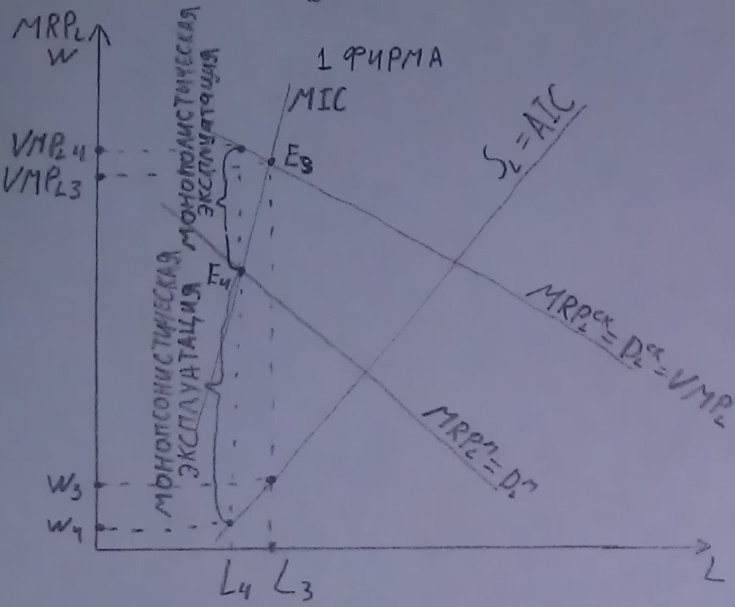 MRP_L
W
1 ФИРМА
MIC
МОНОПОЛИСТИЧЕСКАЯ
ЭКСПЛУАТАЦИЯ
S_L = AIC
VMP_L4
VMP_L3
E_3
E_4
МОНОПСОНИСТИЧЕСКАЯ
ЭКСПЛУАТАЦИЯ
MRP_L^СК = D_L^СК = VMP_L
MRP_L^М = D_L^М
W_3
W_4
L_4
L_3
L